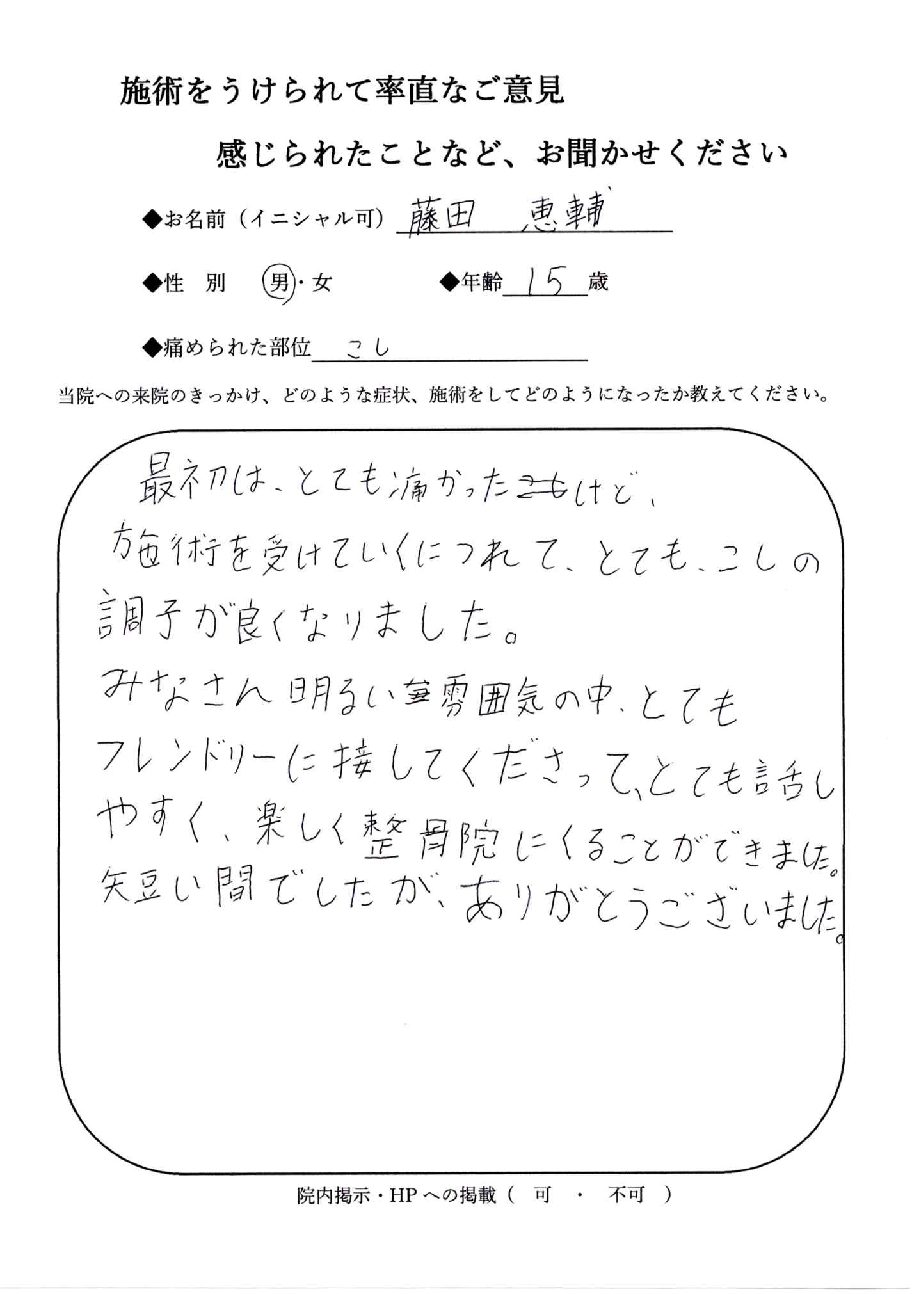 施術をうけられて率直なご意見
感じられたことなど、お聞かせください
◆お名前（イニシャル可） 藤田 恵輔
◆性 別 男・女 ◆年齢 15 歳
◆痛められた部位 こし
当院への来院のきっかけ、どのような症状、施術をしてどのようになったか教えてください。
最初は、とても痛かったけど、
施術を受けていくにつれて、とても、こしの
調子が良くなりました。
みなさん明るい雰囲気の中、とても
フレンドリーに接してくださって、とても話し
やすく、楽しく整骨院にくることができました。
短い間でしたが、ありがとうございました。
院内掲示・HPへの掲載（ 可 ・ 不可 ）